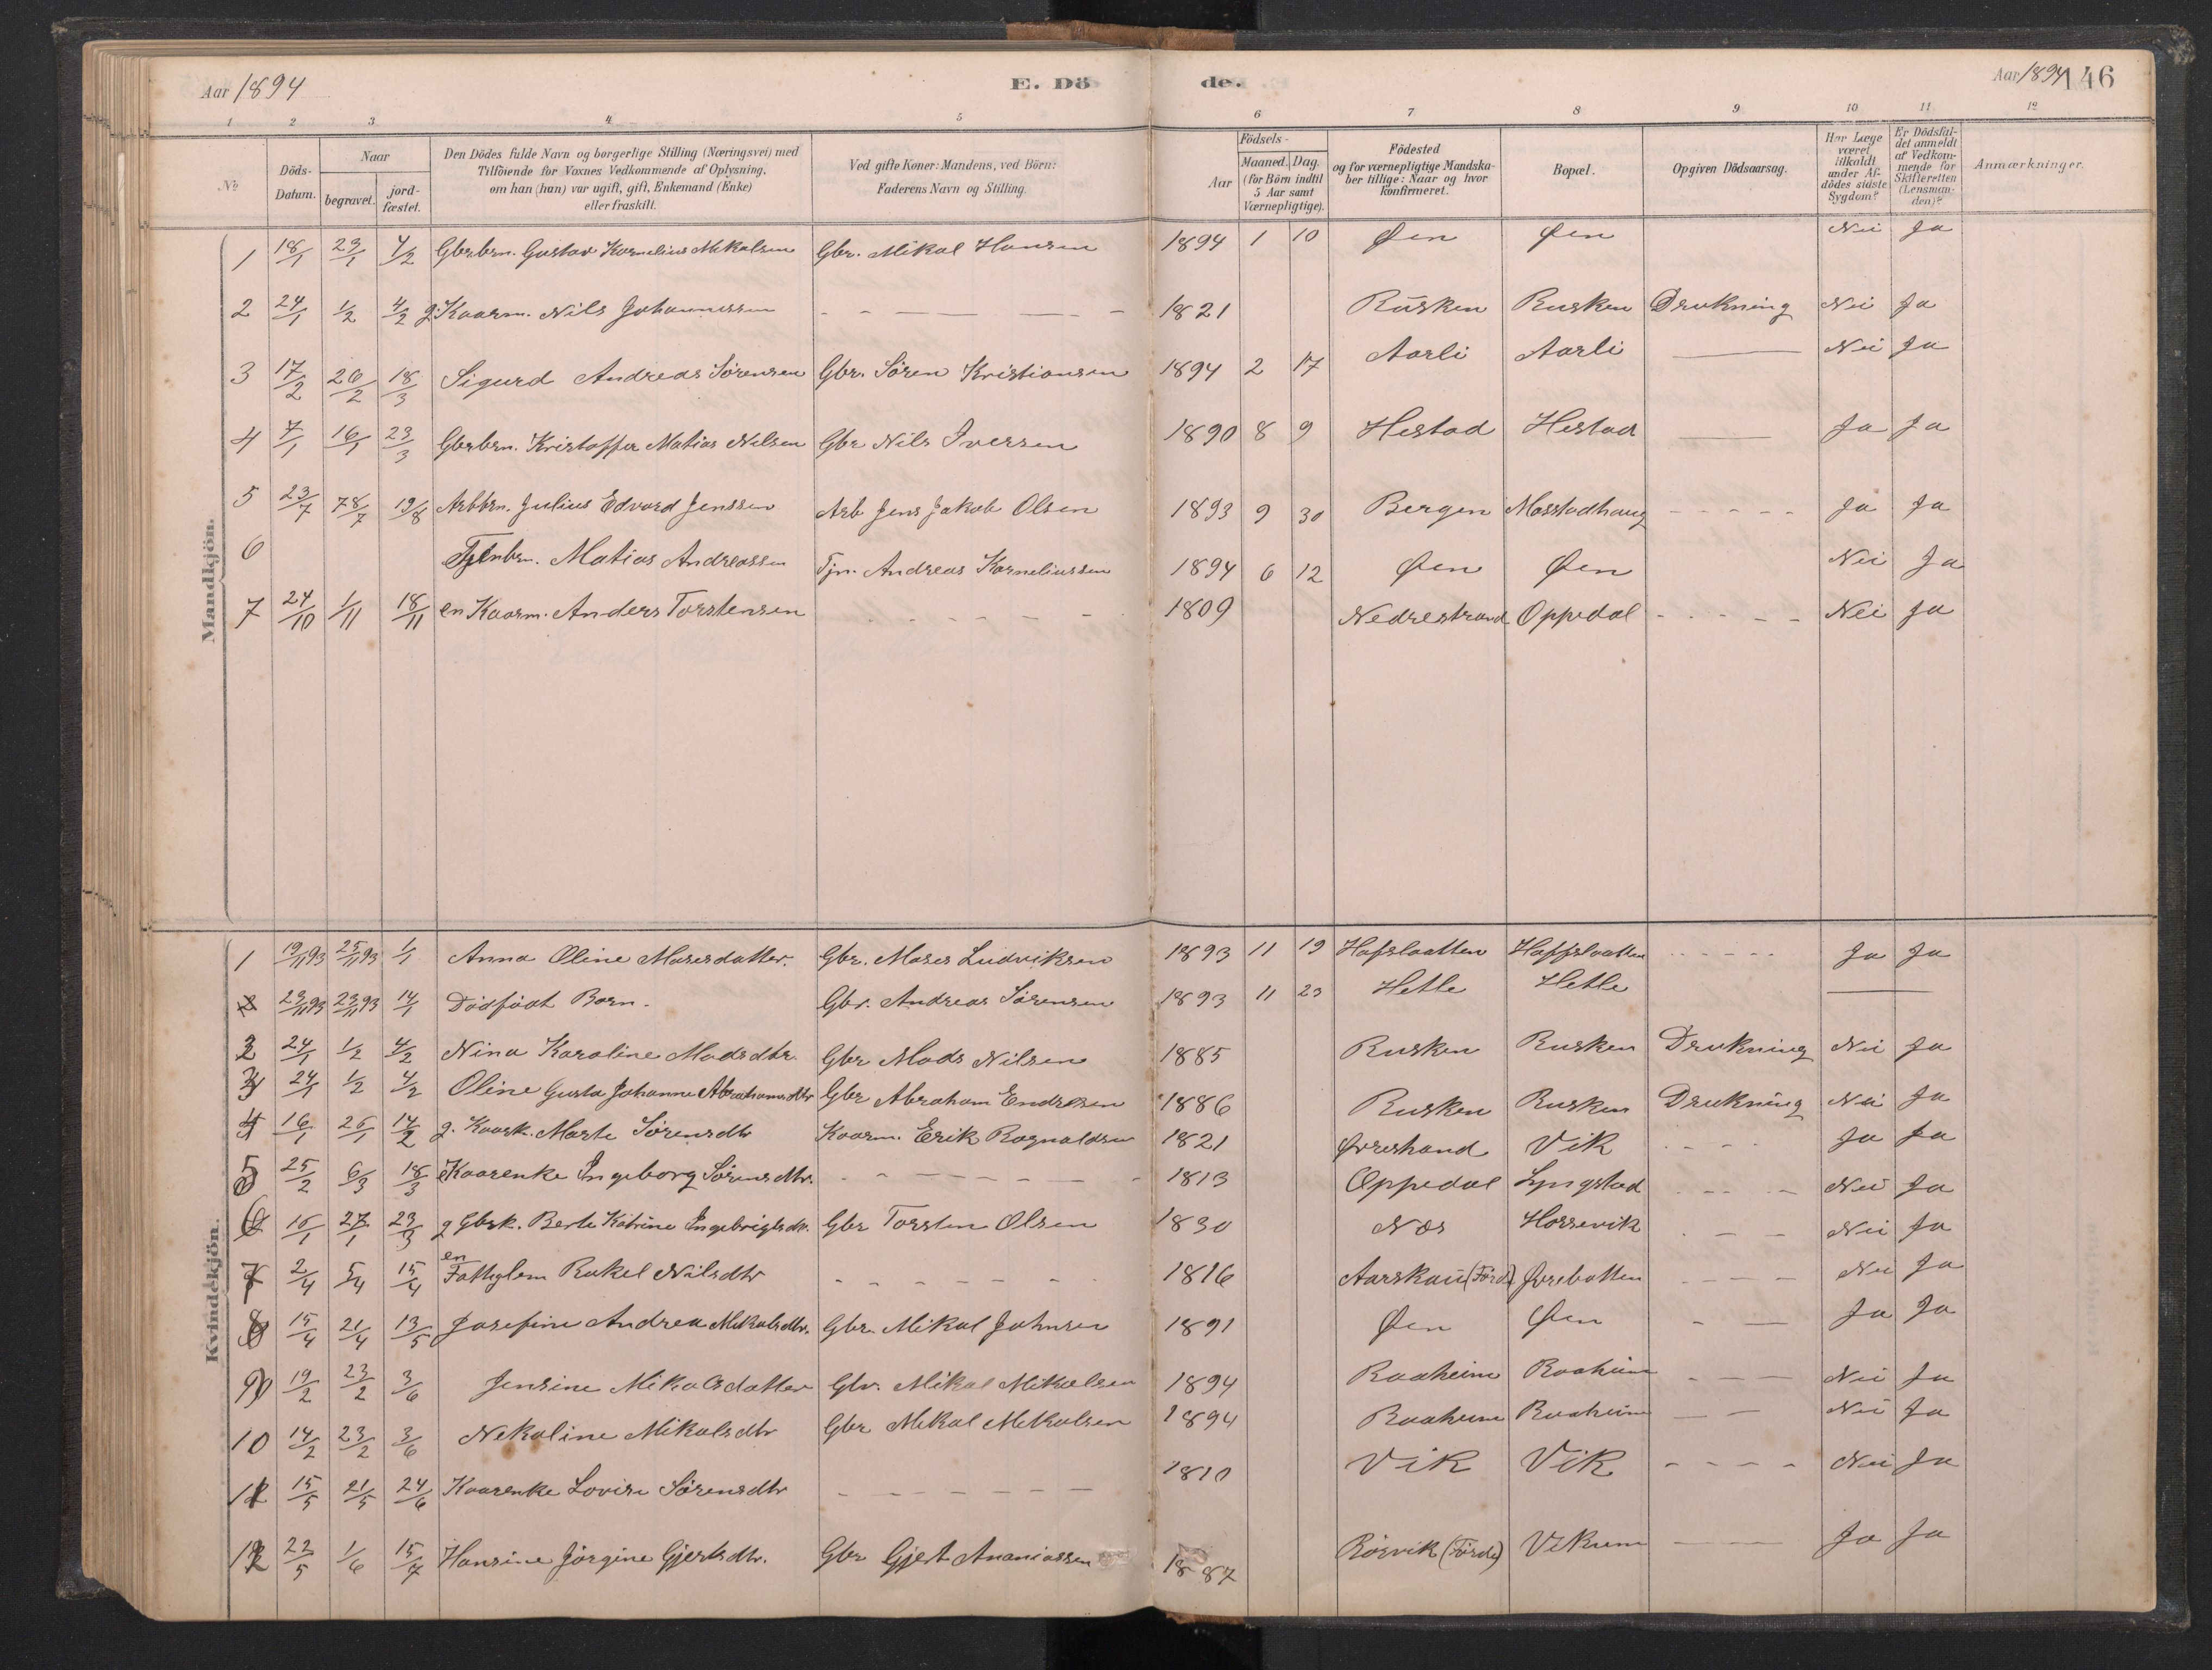 Aar 1894
E. Dö
de.
Aar 1894 146
1 2 3 4 5 6 7 8 9 10 11 12
No
Döds-Datum.
Naar begravet. jord-fæstet.
Den Dödes fulde Navn og borgerlige Stilling (Næringsvei) med
Tilföiende for Voxnes Vedkommende af Oplysning,
om han (hun) var ugift, gift, Enkemand (Enke)
eller fraskilt.
Ved gifte Koner: Mandens, ved Börn:
Faderens Navn og Stilling.
Födsels-
Aar
Maaned. Dag.
(for Börn indtil
5 Aar samt
Værnepligtige).
Födested
og for værnepligtige Mandska-
ber tillige: Naar og hvor
konfirmeret.
Bopæl.
Opgiven Dödsaarsag.
Har Læge
været
tilkaldt
under Af-
dödes sidste
Sygdom?
Er Dödsfal-
det anmeldt
af Vedkom-
mende for
Skifteretten
(Lensman-
den)?
Anmærkninger.
Mandkjön.
1 18/1 23/1 4/2 Gbrbrn. Gustav Kornelius Mikalsen Gbr. Mikal Hansen 1894 1 10 Øen Øen Nei Ja
2 24/1 1/2 4/2 g. Kaarm. Nils Johannessen 1821 Rusken Rusken Drukning Nei Ja
3 17/2 26/2 18/3 Sigurd Andreas Sörensen Gbr. Sören Kristiansen 1894 2 17 Aarli Aarli Nei Ja
4 7/1 16/1 23/3 Gbrbrn. Kristoffer Matias Nilsen Gbr Nils Iversen 1890 8 9 Hestad Hestad Ja Ja
5 23/7 28/7 19/8 Arbbrn. Julius Edvard Jenssen Arb Jens Jakob Olsen 1893 9 30 Bergen Masstadhaug Ja Ja
6 Tjenbrn. Matias Andreassen Tjn. Andreas Korneliussen 1894 6 12 Øen Øen Nei Ja
7 24/10 1/11 18/11 en Kaarm. Anders Torstensen 1809 Nedrestrand Oppedal Nei Ja
Kvindekjön.
1 19/11 93 25/11 93 1/1 Anna Oline Mosesdatter. Gbr. Moses Ludviksen 1893 11 19 Hafslaatten Haffslaatten Ja Ja
2 23/11 93 23/11 93 14/1 Dödfödt Barn. Gbr. Andreas Sörensen 1893 11 23 Hetle Hetle
2 24/1 1/2 4/2 Nina Karoline Madsdtr. Gbr Mads Nilsen 1885 Rusken Rusken Drukning Nei Ja
3 24/1 1/2 4/2 Oline Gusta Johanne Abrahamsdtr Gbr Abraham Endresen 1886 Rusken Rusken Drukning Nei Ja
4 16/1 26/1 14/2 g. Kaark. Marte Sörensdtr Kaarm. Erik Ragnaldsen 1821 Øvrestrand Vik Ja Ja
5 25/2 6/3 18/3 Kaarenke Ingeborg Sörensdtr. 1813 Oppedal Lyngstad Nei Ja
6 16/1 27/1 23/3 g Gbrk. Berte Katrine Ingebrigtsdtr. Gbr Torsten Olsen 1830 Næs Horsevik Nei Ja
7 2/4 5/4 15/4 en Fattiglem Rakel Nilsdtr 1816 Aarskau (Förd.) Øvrebotten Nei Ja
8 15/4 21/4 13/5 Josefine Andrea Mikalsdtr. Gbr. Mikal Johnsen 1891 Øen Øen Ja Ja
9 19/2 23/2 3/6 Jensine Mikalsdatter Gbr. Mikal Mikalsen 1894 Raaheim Raaheim Nei Ja
10 14/2 23/2 3/6 Nekoline Mikalsdtr Gbr Mikal Mikalsen 1894 Raaheim Raaheim Nei Ja
11 15/5 21/5 24/6 Kaarenke Lovise Sörensdtr 1810 Vik Vik Nei Ja
12 22/5 1/6 15/7 Hansine Jörgine Gjertsdtr. Gbr Gjert Ananiassen 1887 Rörvik (Förde) Vikum Ja Ja